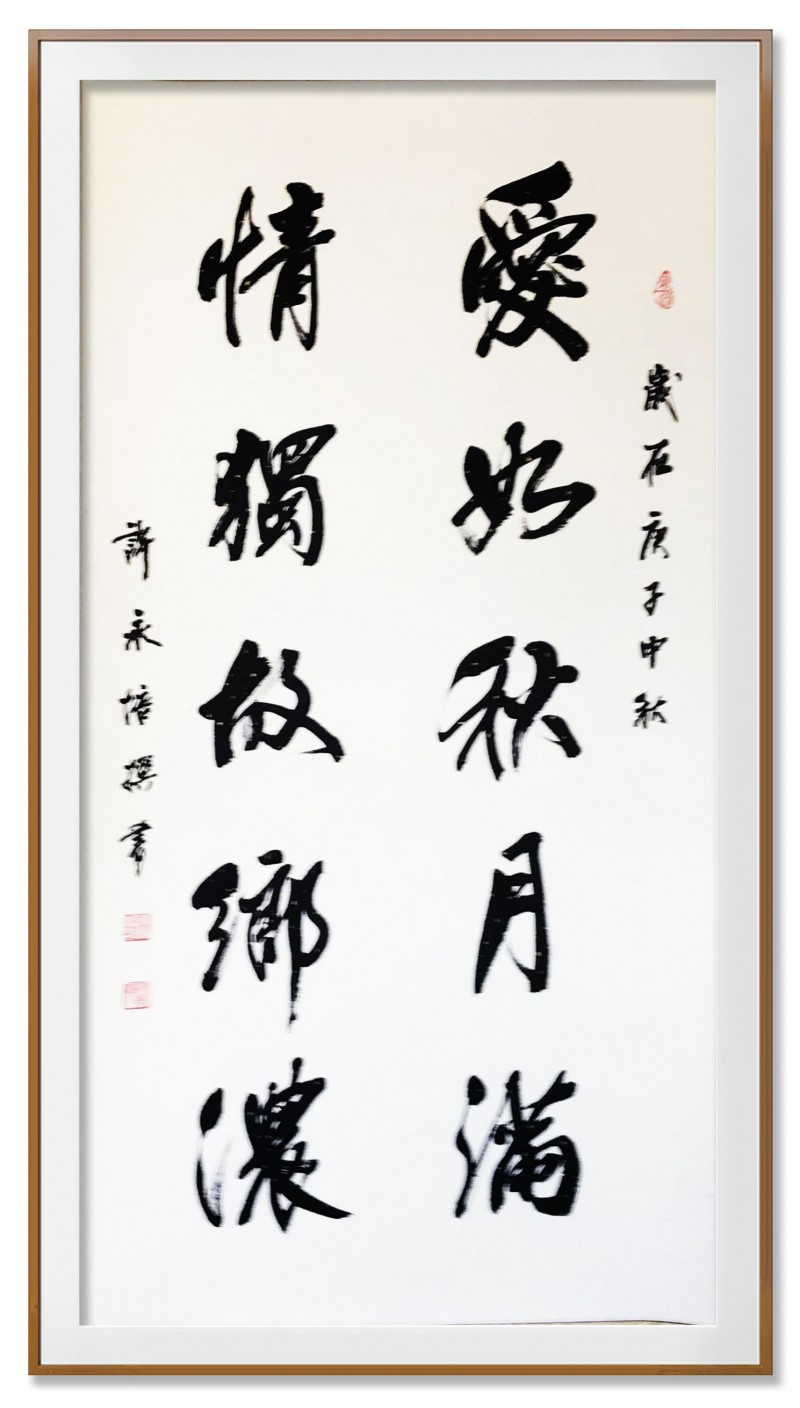 歲在庚子中秋
愛如秋月滿
情獨故鄉濃
許永培撰書